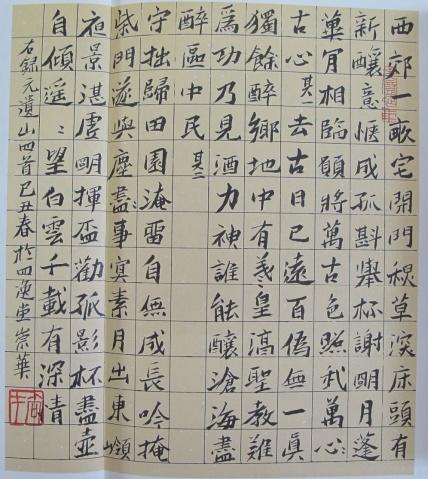 西郊一畝宅閉門秋草深床頭有
新釀意愜成孤斟舉杯謝明月蓬
蓽肯相臨願將萬古色照我萬心
古心其一去古日已遠百偽無一真
獨餘醉鄉地中有羲皇淳聖教難
為功乃見酒力神誰能釀滄海盡
醉區中民其二
守拙歸田園淹留自無成長吟掩
柴門遂與塵盡事冥素月出東嶺
夜景湛虛明揮杯勸孤影杯盡壺
自傾遥〻望白雲千載有深青
右錄元遺山四首己丑春於四逸堂崇華